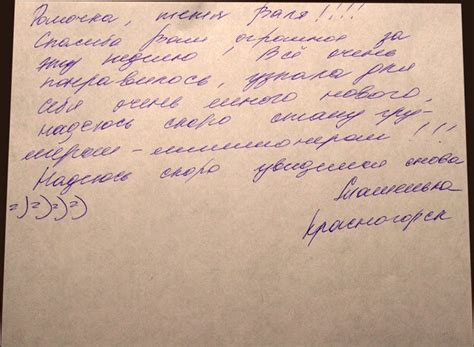 Ромочка, тетя Валя!!!!
Спасибо Вам огромное за
эту неделю! Всё очень
понравилось, узнала для
себя очень много нового,
надеюсь скоро стану гру-
мером-миллионером!!!
Надеюсь скоро увидимся снова
=)=)=)=)
Машенька
Красногорск